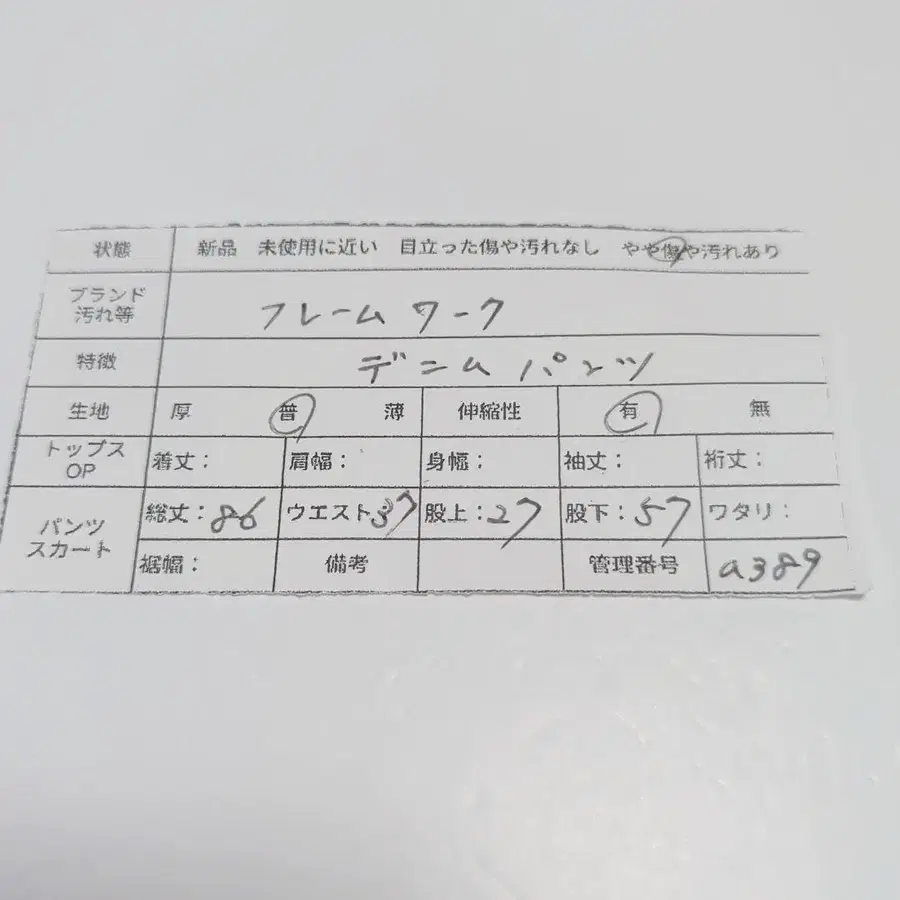 状態 新品 未使用に近い 目立った傷や汚れなし やや傷や汚れあり
ブランド
汚れ等 フレームワーク
特徴 デニムパンツ
生地 厚 普 薄 伸縮性 有 無
トップス
OP 着丈： 肩幅： 身幅： 袖丈： 裄丈：
パンツ
スカート 総丈：86 ウエスト37 股上：27 股下：57 ワタリ：
裾幅： 備考 管理番号 a389